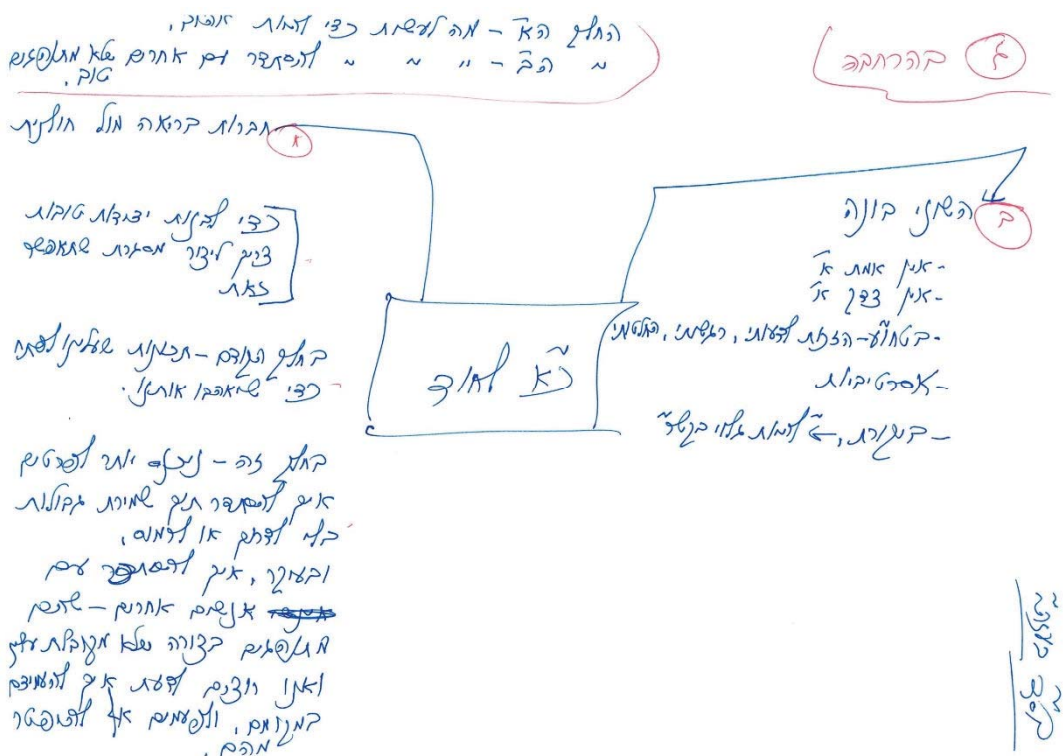 ג בהרחבה
החלק הא' – מה לעשות כדי להיות אהוב.
" הב' – " " " להסתדר עם אחרים שלא מתנהגים
טוב.
א חברות בריאה מול חולנית
כדי לבנות ידידות טובות
צריך ליצור מסגרת שתאפשר
זאת
בחלק הקודם – תכונות שעלינו לפתח
כדי שיאהבו אותנו.
בחלק זה – ניכנס יותר לפרטים
איך להסתדר תוך שמירת גבולות
בלי לדרוך או לרמוס.
ובעיקר, איך להסתדר עם
אנשים אחרים – שהם
מתנהגים בצורה שלא מקובלת עלינו
ואנו רוצים לדעת איך להעמידם
במקומם, ולפעמים אף להיפטר
מהם.
כ"א לחוד
ב השוני בונה
- אין אמת א'
- אין צדק א'
- הזכות לדעותי, רגשותי, החלטותי
- אסרטיביות
- ביקורת, ← "להיות גלוי בקשר"